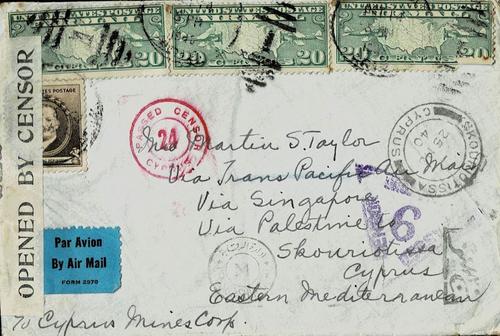 UNITED STATES POSTAGE
AIR MAIL
20
20 20
20 20
ES POSTAGE
OPENED BY CENSOR
PASSED CENSOR
24
CYPRUS
SKOURIOTISSA
25
40
CYPRUS
Mrs Martin S. Taylor
Via Trans Pacific Air Mail
Via Singapore
Via Palestine to
Skouriotissa
Cyprus
Eastern Mediterranean
To Cyprus Mines Corp.
6
Par Avion
By Air Mail
FORM 2978